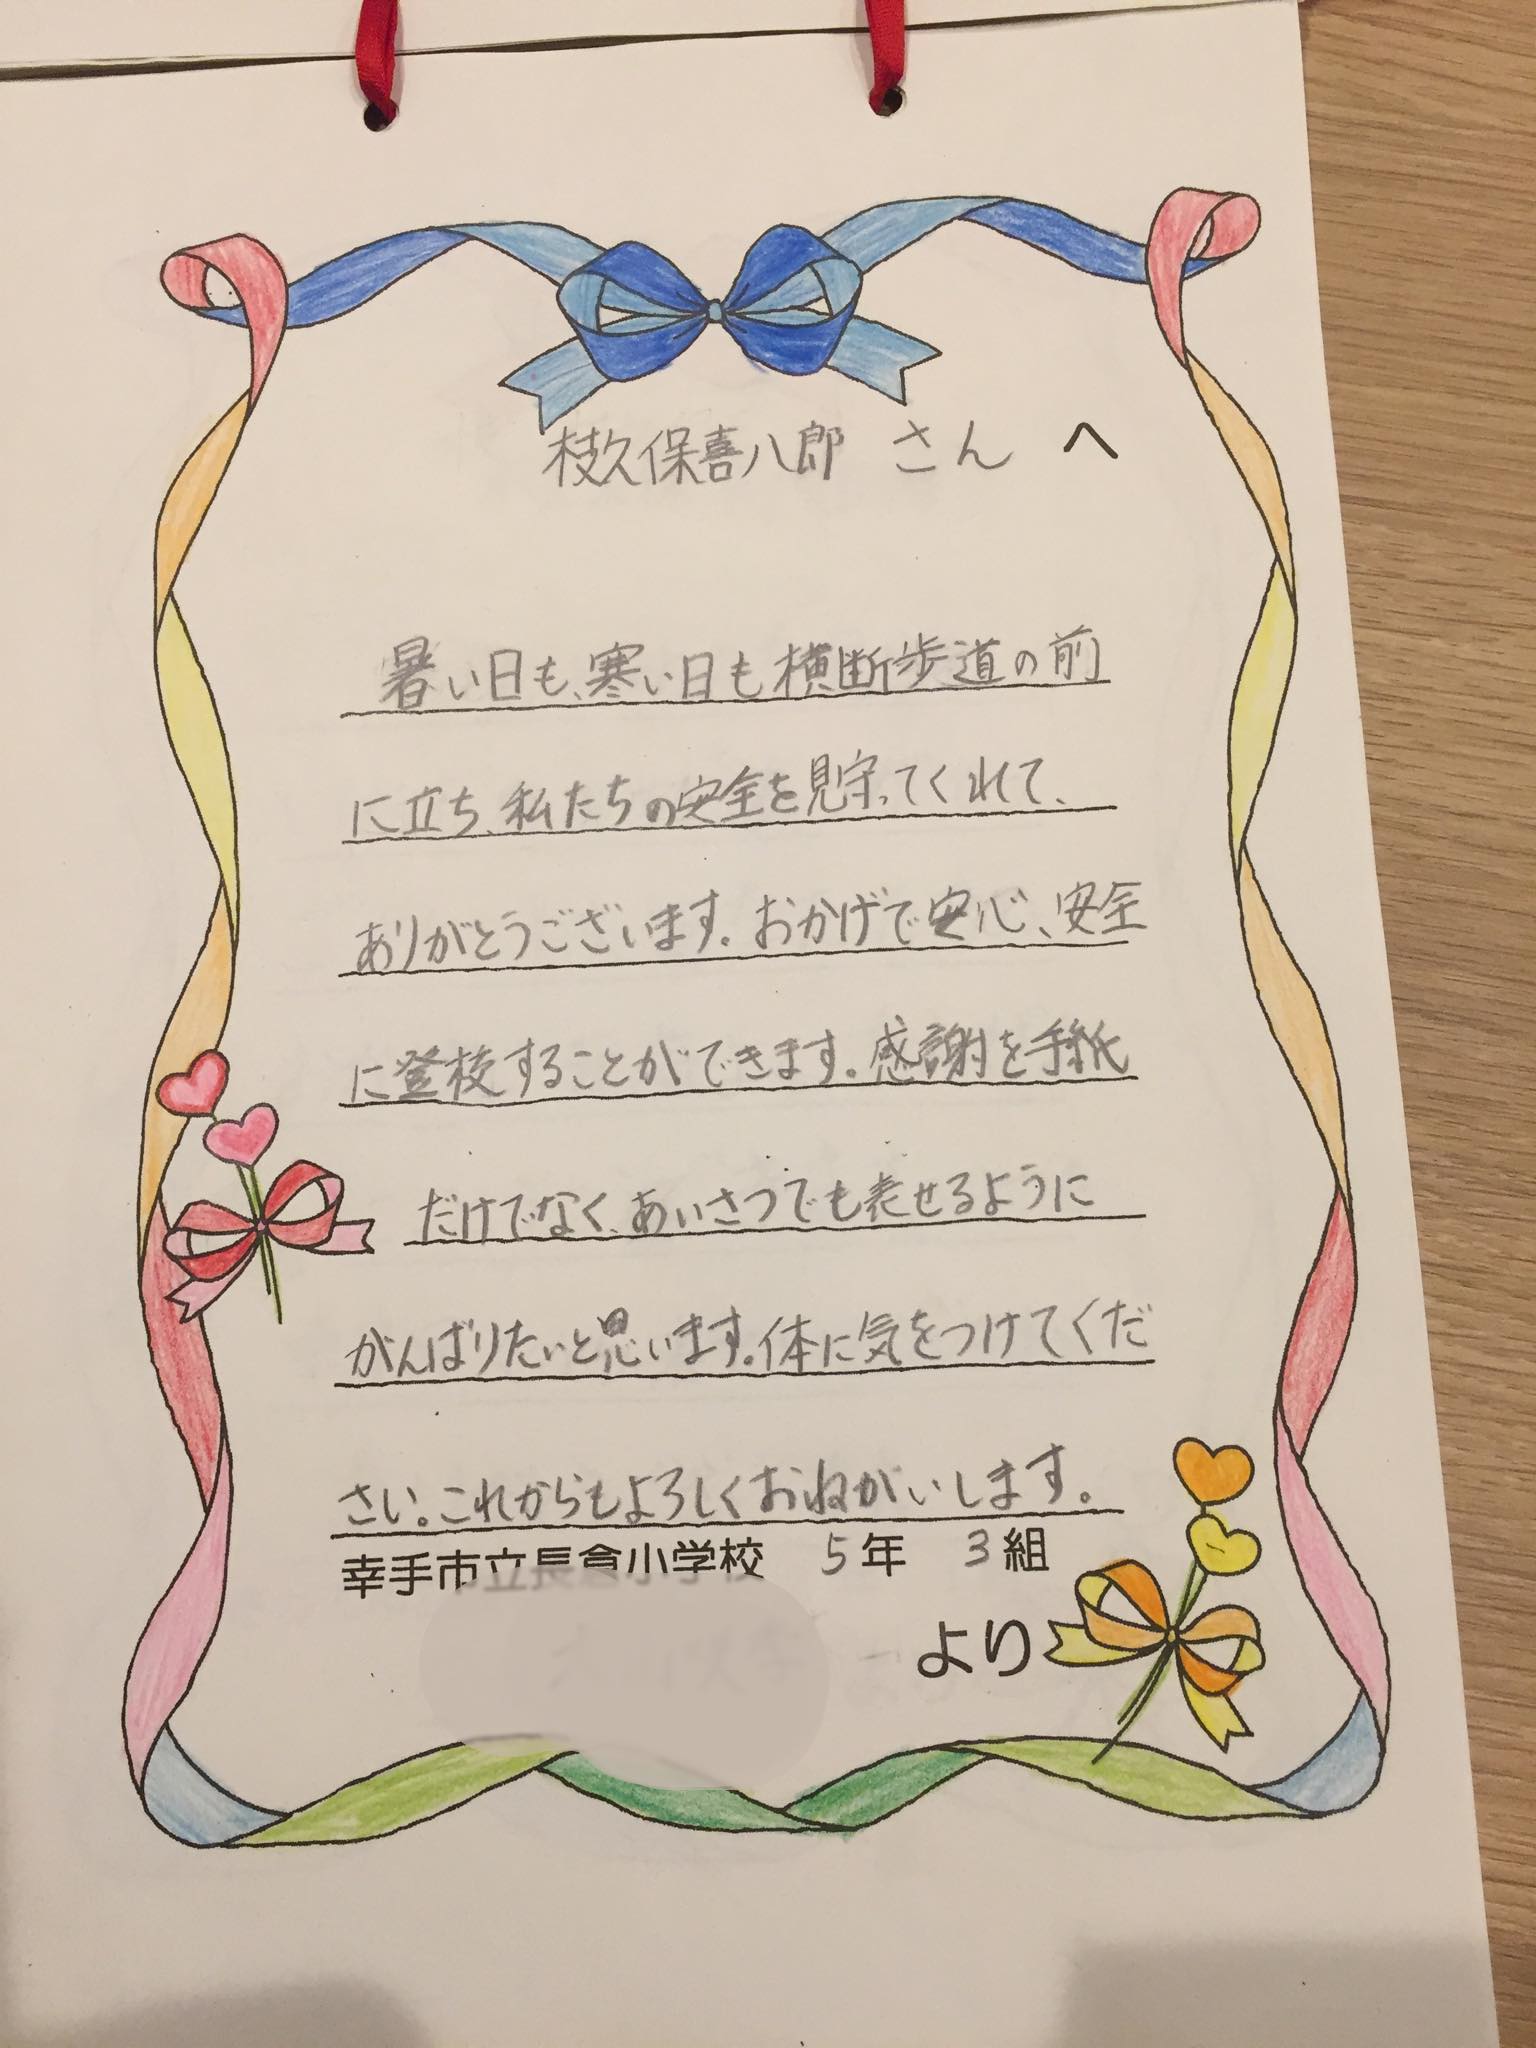 枝久保喜八郎 さん へ
暑い日も、寒い日も横断歩道の前
に立ち、私たちの安全を見守ってくれて、
ありがとうございます。おかげで安心、安全
に登校することができます。感謝を手紙
だけでなく、あいさつでも表せるように
がんばりたいと思います。体に気をつけてくだ
さい。これからもよろしくおねがいします。
幸手市立長倉小学校 5年 3組
より